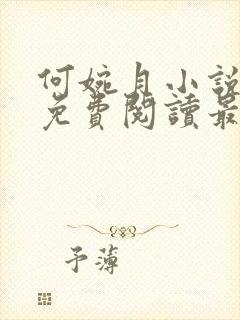 何婉月小說
免費閱讀最
予薄